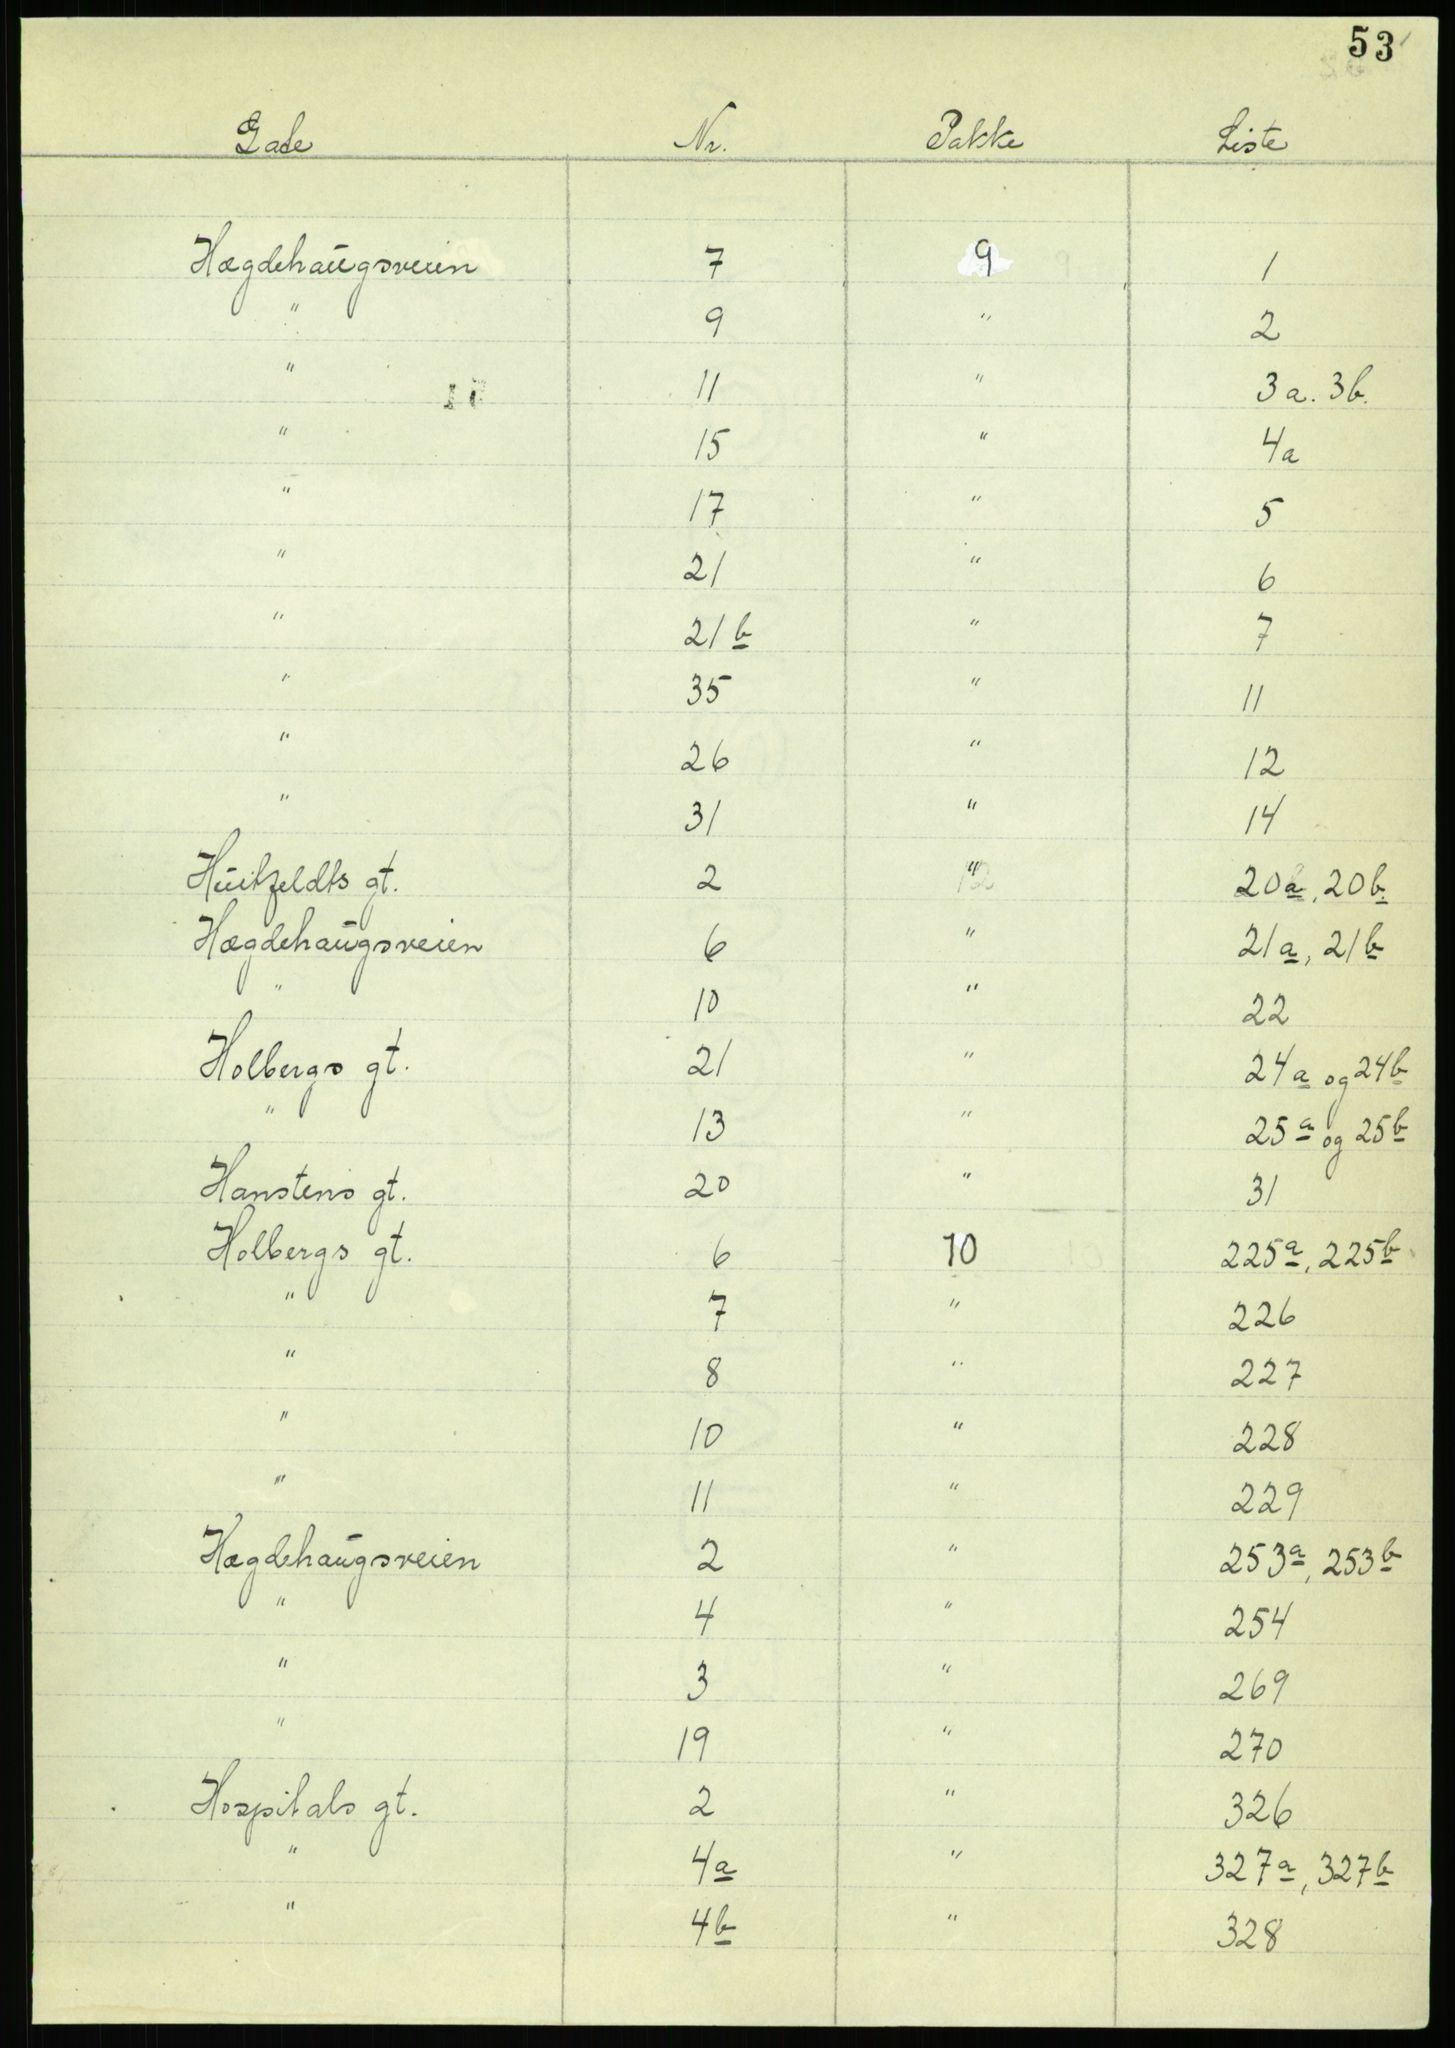 53
Gade Nr. Pakke Liste
Hægdehaugsveien 7 9 1
" 9 " 2
" 11 " 3a. 3b.
" 15 " 4a
" 17 " 5
" 21 " 6
" 21b " 7
" 35 " 11
" 26 " 12
" 31 " 14
Huitfeldts gt. 2 " 20a, 20b.
Hægdehaugsveien 6 " 21a, 21b
" 10 " 22
Holbergs gt. 21 " 24a og 24b
" 13 " 25a og 25b
Hanstens gt. 20 " 31
Holbergs gt. 6 10 225a, 225b
" 7 " 226
" 8 " 227
" 10 " 228
" 11 " 229
Hægdehaugsveien 2 " 253a, 253b
" 4 " 254
" 3 " 269
" 19 " 270
Hospitals gt. 2 " 326
" 4a " 327a, 327b
" 4b " 328